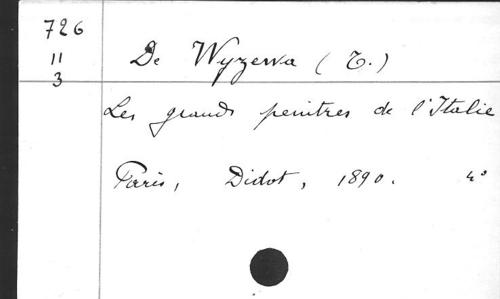 726
11
3
De Wyzewa (T.)
Les grands peintres de l'Italie
Paris, Didot, 1890. 4°